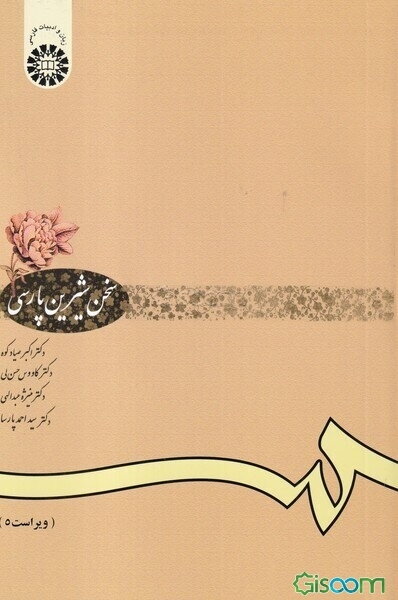 زبان و ادبیات فارسی
سخن شیرین پارسی
دکتر اکبر صیادکوه
دکتر کاووس حسن لی
دکتر منیژه عبدالهی
دکتر سید احمد پارسا
(ویراست ۵)
Gisoom